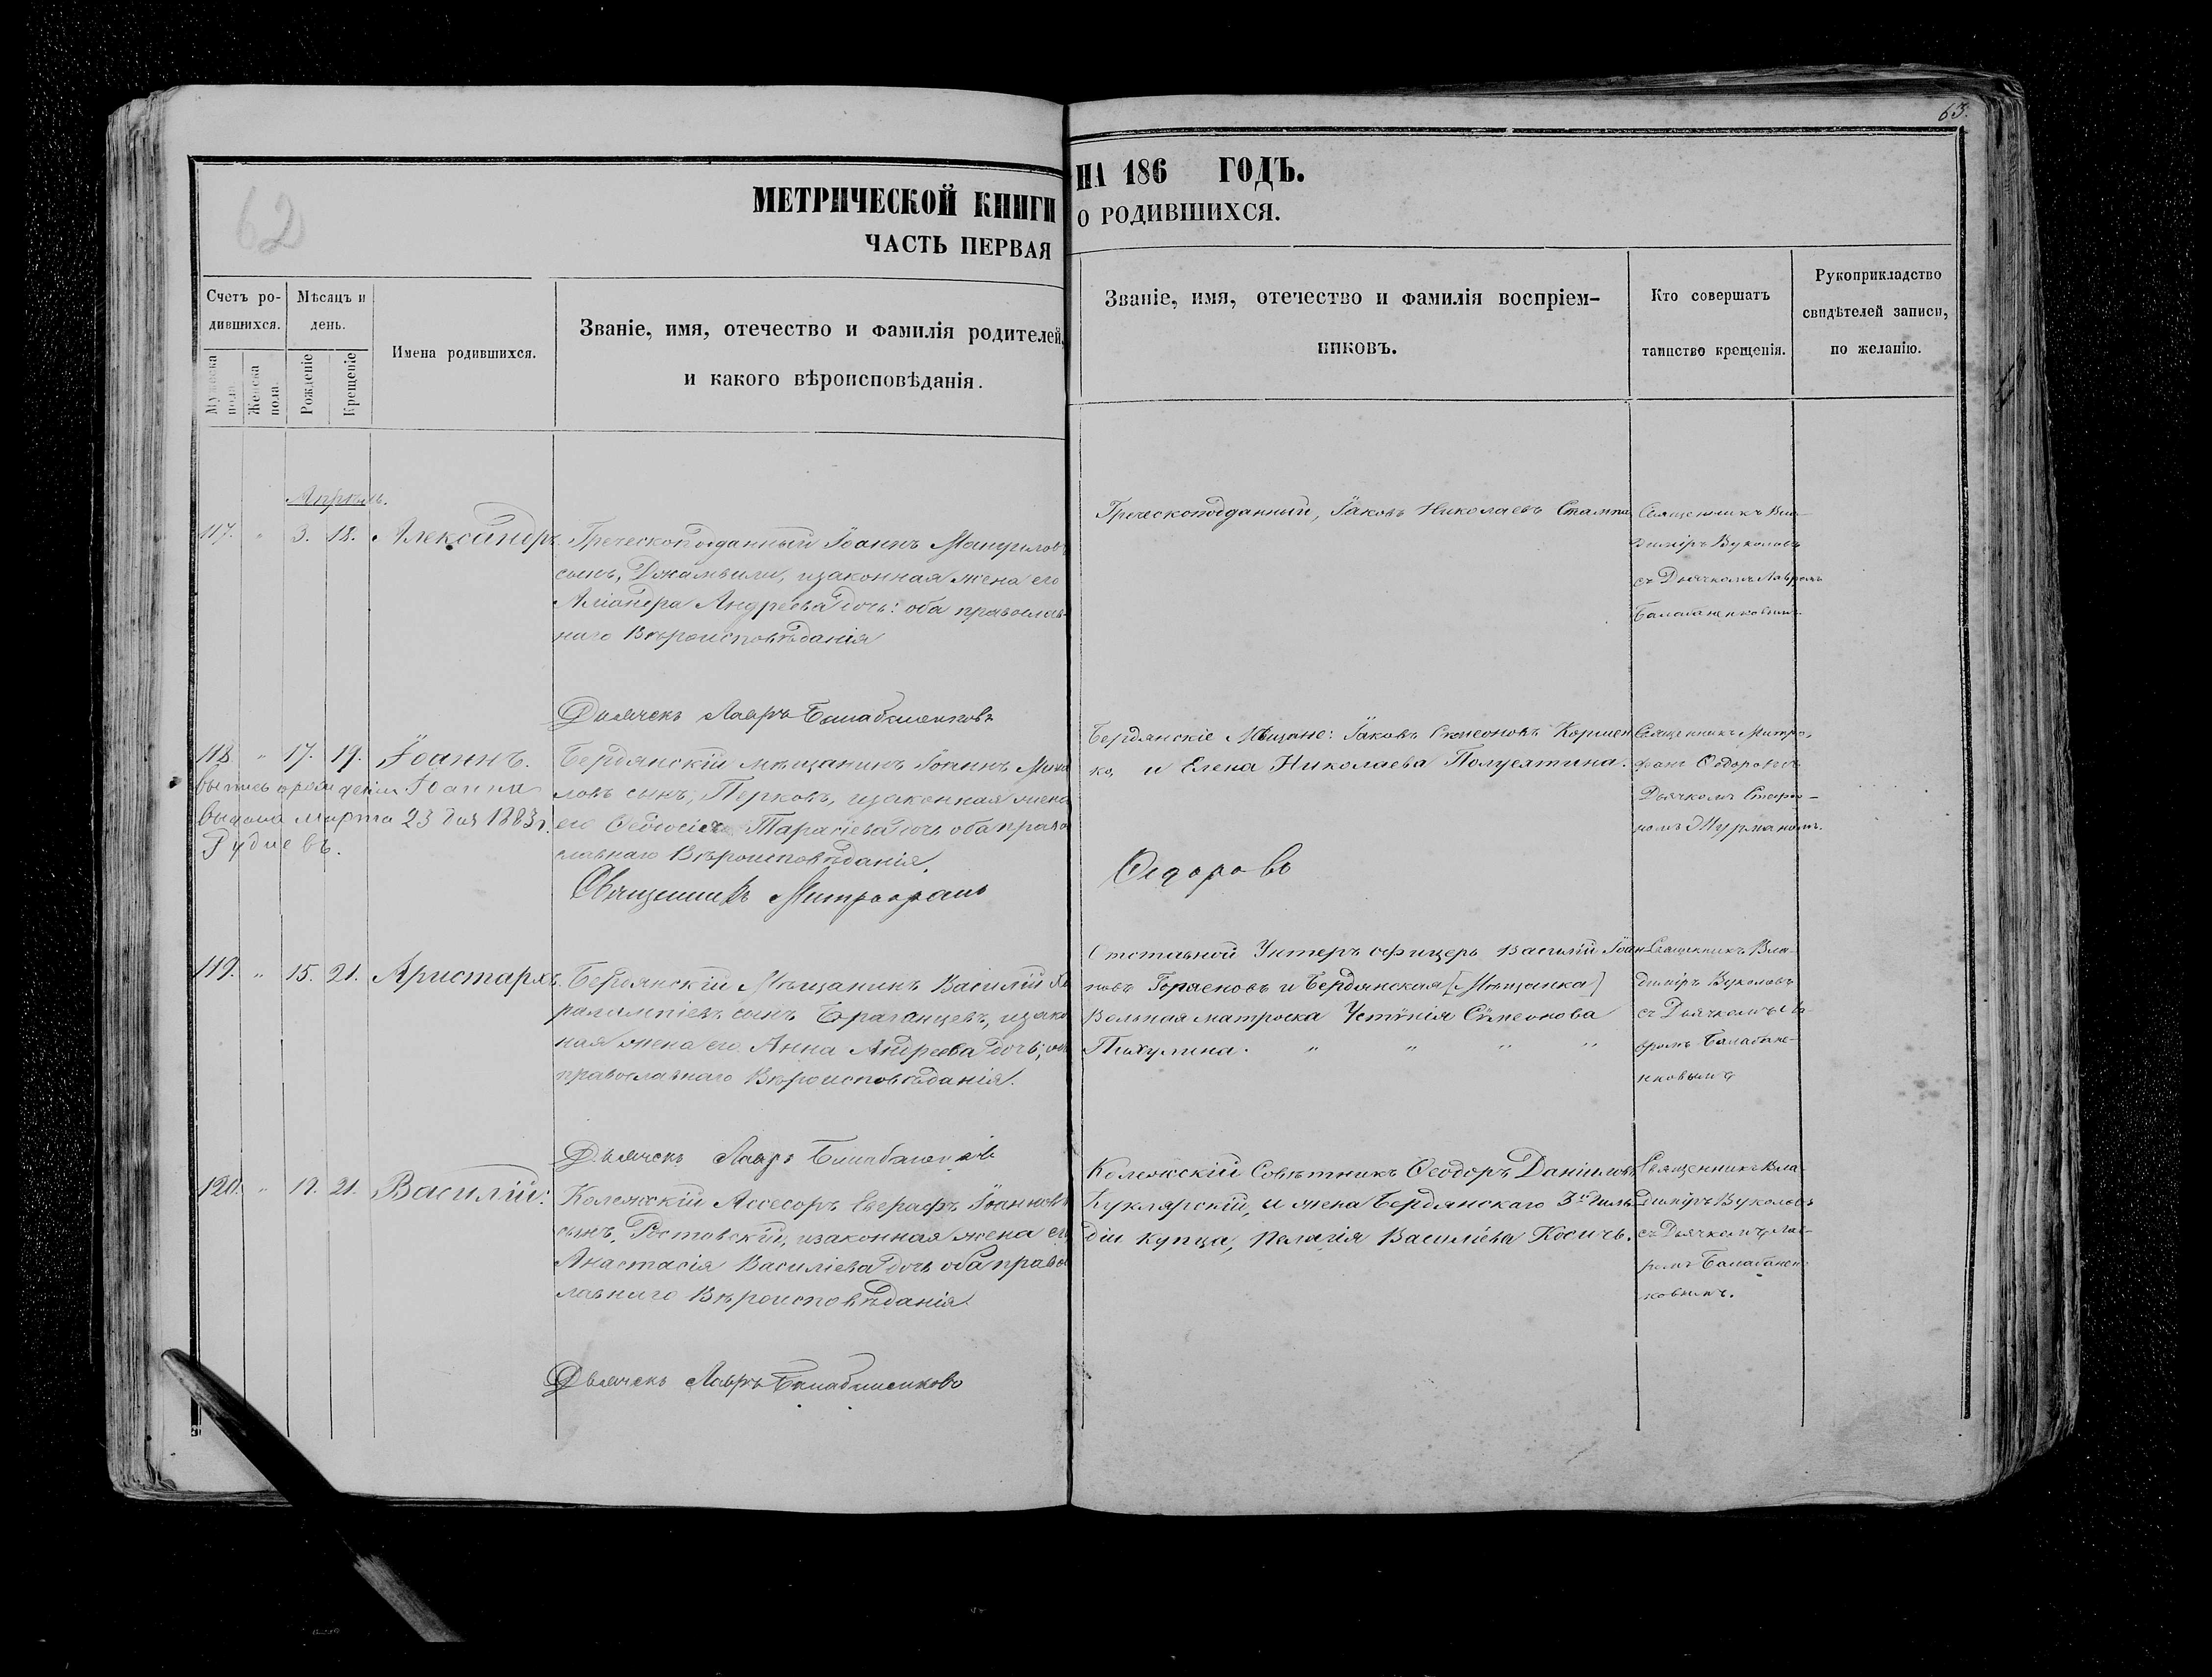 62
63.
МЕТРИЧЕСКОЙ КНИГИ
НА 186 ГОДЪ.
ЧАСТЬ ПЕРВАЯ
О РОДИВШИХСЯ.
Счетъ ро-
дившихся.
Мужеска
пола
Женска
пола.
Мѣсяцъ и
день.
Рожденіе
Крещеніе
Имена родившихся.
Званіе, имя, отечество и фамилія родителей,
и какого вѣроисповѣданія.
Званіе, имя, отечество и фамилія воспріем-
никовъ.
Кто совершатъ
таинство крещенія.
Рукоприкладство
свидѣтелей записи,
по желанію.
Апрѣль.
117. " 3. 18. Александръ.
Греческоподданный Іоаннъ Мануиловъ
сынъ, Джамвили, изаконная жена его
Андреева дочь: оба православ-
наго Вѣроисповѣданія
Дьячекъ Лавръ Балабаненковъ
Греческоподданный, Іаковъ Николаевъ Стампа
Священникъ Вла-
диміръ Вуколовъ
съ Дьячкомъ Лавромъ
Балабаненковымъ
118. " 17. 19. Іоаннъ.
рожденіи Іоанна
выдана марта 23 дня 1883 г.
Рудневъ.
Бердянскій мѣщанинъ Іоаннъ Миха
ловъ сынъ, Перковъ, изаконная жена
его Ѳеодосія Тарасіева дочь оба право
славнаго Вѣроисповѣданія.
Священникъ Митрофанъ
Ѳедоровъ
Бердянскіе Мѣщане: Іаковъ Симеоновъ Кормен
ко, и Елена Николаева Полуектина.
Священникъ Митро-
фанъ Ѳедоровъ
Дьячкомъ
номъ Мурманомъ.
119. " 15. 21. Аристархъ.
Бердянскій Мѣщанинъ Василій Ха
ралампіевъ сынъ Браганцевъ, изако
ная жена его Анна Андреева дочь; оба
православнаго Вѣроисповѣданія.
Дьячекъ Лавръ Балабаненковъ
Отставной Унтеръ офицеръ Василій Іоан
новъ Горяеновъ и Бердянская [Мѣщанка]
Вольная матроска Устинія Симеонова
Пикулина. " " " "
Священникъ Вла-
диміръ Вуколовъ
съ Дьячкомъ Ла-
вромъ Балабане-
нковымъ
120. " 17. 21. Василій:
Колежскій Ассесоръ Серафъ Іоанновъ
сынъ, Ростовскій, изаконная жена его
Анастасія Василіева дочь оба право
лавнаго Вѣроисповѣданія.
Дьячекъ Лавръ Балабаненковъ
Колежскій Совѣтникъ Ѳеодоръ Даніиловъ
Куклярскій, и жена Бердянскаго 3й Гиль
діи купца, Пелагія Василіева Косичъ.
Священникъ Вла-
диміръ Вуколовъ
съ Дьячкомъ Лав-
ромъ Балабанен-
ковымъ.